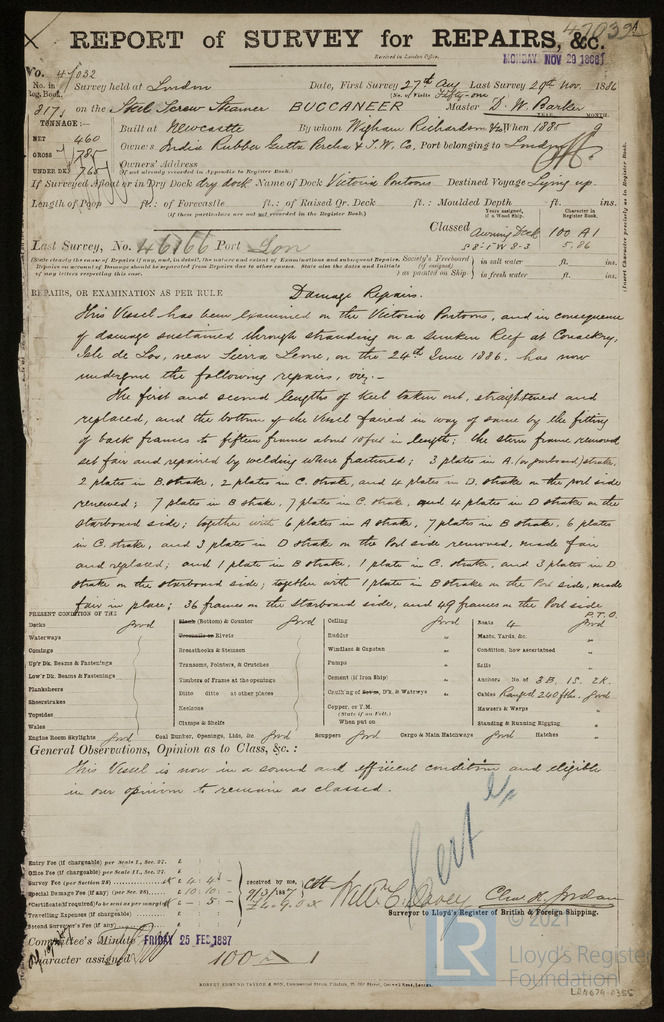 47032A
REPORT of SURVEY for REPAIRS, &c.
Received in London Office,
MONDAY NOV 29 1886
No. 47032
No. in Reg. Book. Survey held at London Date, First Survey 27th Aug Last Survey 29th Nov. 1886
(No. of Visits Fifty-one
817 on the Steel Screw Steamer BUCCANEER Master D. W. Barker
TONNAGE:— YEAR. MONTH.
NET 460 Built at Newcastle By whom Wigham Richardson & Co When 1885 9
GROSS 785 Owners India Rubber Gutta Percha & T. W. Co. Port belonging to London
UNDER DK. 765 Owners' Address
(If not already recorded in Appendix to Register Book.)
If Surveyed Afloat or in Dry Dock dry dock Name of Dock Victoria Pontoons Destined Voyage Lying up.
Length of Poop ft.: of Forecastle ft.: of Raised Qr. Deck ft.: Moulded Depth ft. ins.
(If these particulars are not recorded in the Register Book.)
Years assigned, if a Wood Ship. Character in Register Book.
Classed Awning Deck 100 A1
5.86
(Insert Character precisely as in Register Book.
Last Survey, No. 46166 Port Lon
(State clearly the cause of Repairs if any, and, in detail, the nature and extent of Examinations and subsequent Repairs.
Repairs on account of Damage should be separated from Repairs due to other causes. State also the dates and Initials
of any letters respecting this case.
Society's Freeboard (if assigned) as painted on Ship
in salt water ft. ins.
in fresh water ft. ins.
REPAIRS, OR EXAMINATION AS PER RULE Damage Repairs.
This Vessel has been examined on the Victoria Pontoons, and in consequence
of damage sustained through stranding on a Sunken Reef at Conackry,
Isle de Los, near Sierra Leone, on the 24th June 1886. has now
undergone the following repairs, viz:—
The first and second lengths of keel taken out, straightened and
replaced, and the bottom of the Vessel faired in way of same by the fitting
of back frames to fifteen frames about 10 feet in length; the stern frame removed,
set fair and repaired by welding where fractured; 3 plates in A. (or garboard) strake,
2 plates in B. strake, 2 plates in C. strake, and 4 plates in D. strake on the port side
renewed; 7 plates in B strake, 7 plates in C. strake, and 4 plates in D strake on the
starboard side; together with 6 plates in A strake, 7 plates in B strake, 6 plates
in C. strake, and 3 plates in D strake on the Port side removed, made fair
and replaced; and 1 plate in B strake, 1 plate in C. strake, and 3 plates in D
strake on the starboard side; together with 1 plate in B strake on the Port side, made
fair in place; 36 frames on the Starboard side, and 49 frames on the Port side
P.T.O.
PRESENT CONDITION OF THE
Decks good
Waterways
Comings
Up'r Dk. Beams & Fastenings
Low'r Dk. Beams & Fastenings
Planksheers
Sheerstrakes
Topsides
Wales
(Bottom) & Counter good
Rivets
Breasthooks & Stemson
Transoms, Pointers, & Crutches
Timbers of Frame at the openings
Ditto ditto at other places
Keelsons
Clamps & Shelfs
Ceiling good
Rudder "
Windlass & Capstan "
Pumps "
Cement (if Iron Ship) "
Caulk'ng of D'k. & Waterw'ys "
Copper, or Y.M.
(State if on Felt.)
When put on
Boats 4 good
Masts, Yards, &c. "
Condition, how ascertained "
Sails "
Anchors: No. of 3B. 1S. 2K.
Cables Ranged 240 fths. good
Hawsers & Warps "
Standing & Running Rigging "
Engine Room Skylights good Coal Bunker, Openings, Lids, &c. good Scuppers good Cargo & Main Hatchways good Hatches "
General Observations, Opinion as to Class, &c.:
This Vessel is now in a sound and efficient condition and eligible
in our opinion to remain as classed.
Cert
Entry Fee (if chargeable) per Scale I., Sec. 27. £
Office Fee (if chargeable) per Scale II., Sec. 27. £
Survey Fee (per Section 28) £ 4 : 4 : -
Special Damage Fee (if any) (per Sec. 28) £ 10 : 10 : -
Certificate (if required) to be sent as per margin £ - : 5 : -
Travelling Expenses (if chargeable) £
Second Surveyor's Fee (if any)
received by me,
9/3/1887
Willm. C. Davey Clem K. Jordan
Surveyor to Lloyd's Register of British & Foreign Shipping.
Committee's Minute FRIDAY 25 FEB 1887
Character assigned 100 A 1
ROBERT EDMUND TAYLOR & SON,
LR
© 2021
Lloyd's Register
Foundation